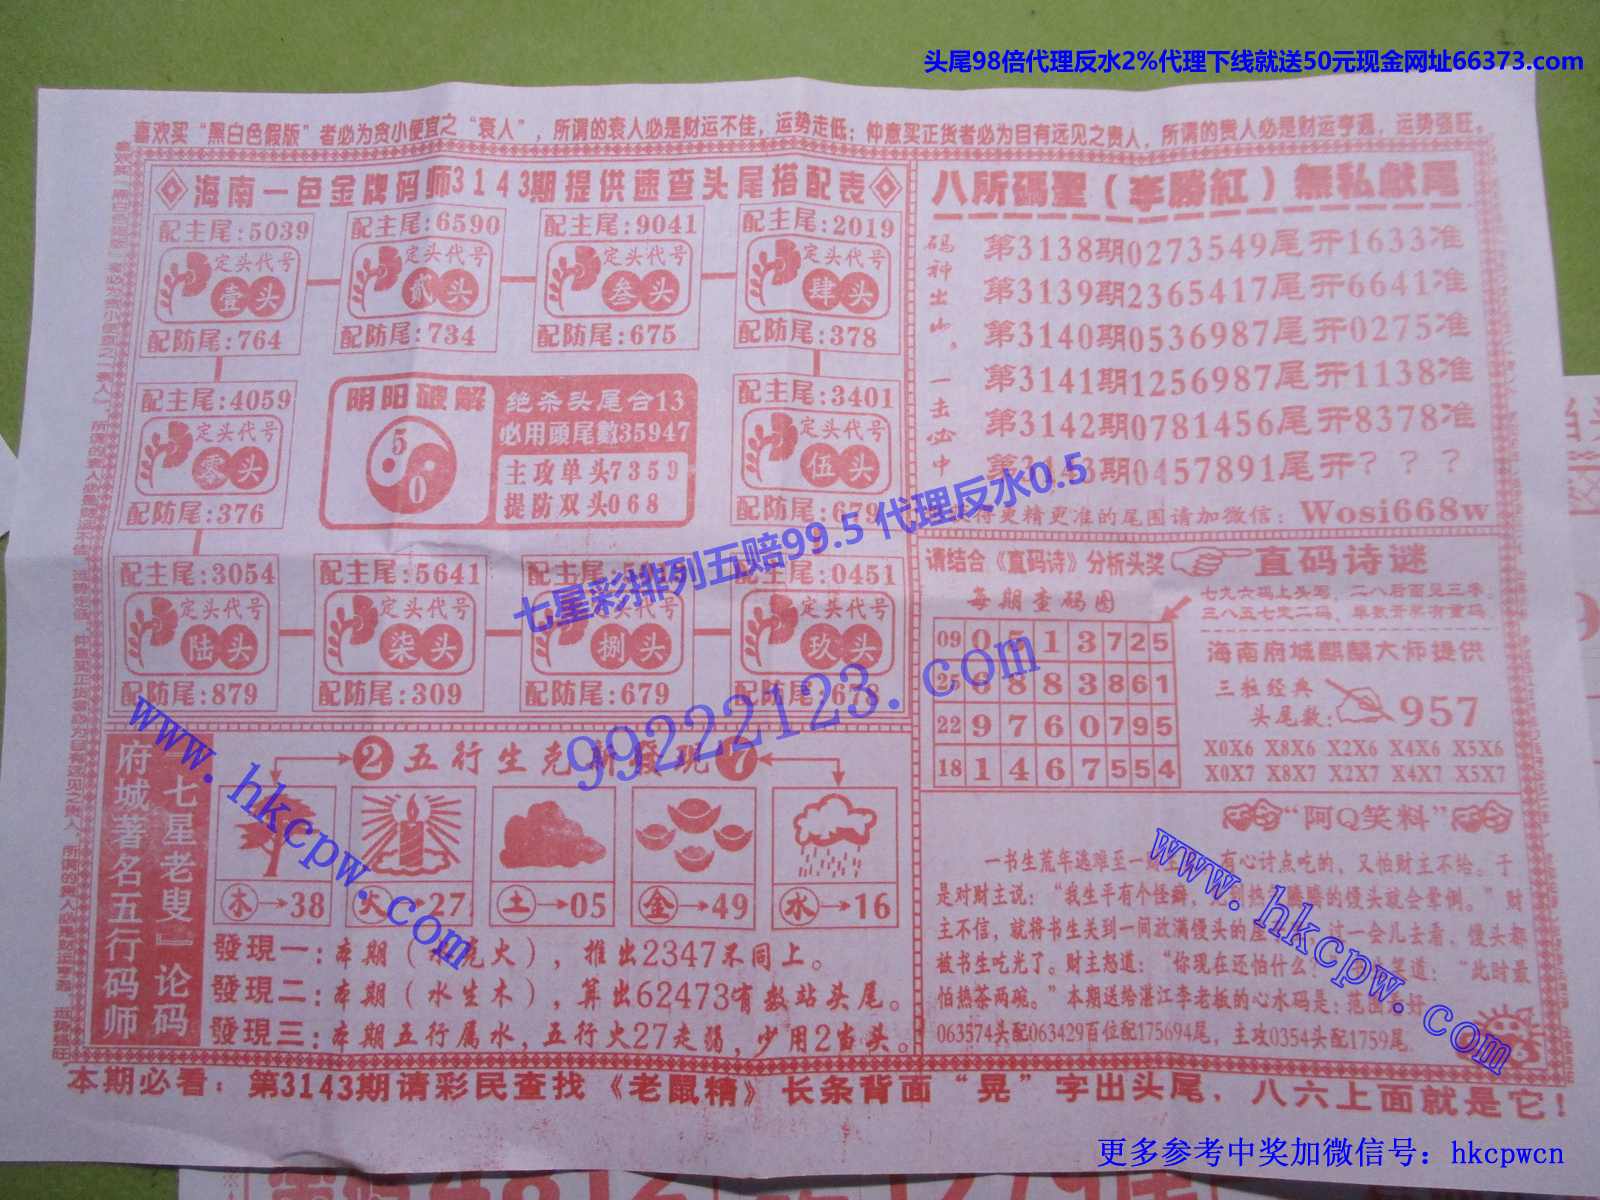 头尾98倍代理反水2%代理下线就送50元现金网址66373.com
喜欢买“黑白色假版”者必为贪小便宜之“衰人”，所谓的衰人必是财运不佳，运势走低；仲意买正货者必为目有远见之贵人，所谓的贵人必是财运亨通，运势强旺。
海南一色金牌码师3143期提供速查头尾搭配表
配主尾:5039
定头代号
壹头
配防尾:764
配主尾:6590
定头代号
贰头
配防尾:734
配主尾:9041
定头代号
叁头
配防尾:675
配主尾:2019
定头代号
肆头
配防尾:378
配主尾:4059
定头代号
零头
配防尾:376
阴阳破解
5
0
绝杀头尾合13
必用頭尾數35947
主攻单头7359
提防双头068
配主尾:3401
定头代号
伍头
配防尾:679
配主尾:3054
定头代号
陆头
配防尾:879
配主尾:5641
定头代号
柒头
配防尾:309
配主尾:
定头代号
捌头
配防尾:679
配主尾:0451
定头代号
玖头
配防尾:678
八所碼聖（李勝紅）無私献尾
码神出山，一击必中
第3138期0273549尾开1633准
第3139期2365417尾开6641准
第3140期0536987尾开0275准
第3141期1256987尾开1138准
第3142期0781456尾开8378准
第3143期0457891尾开？？？
更精更准的尾围请加微信：Wosi668w
请结合《直码诗》分析头奖
直码诗谜
每期查码图
七九六码上头写，二八后面见三零。
三八五七之二码，单数开单有重码。
09 0 5 1 3 7 2 5
25 6 8 8 3 8 6 1
22 9 7 6 0 7 9 5
18 1 4 6 7 5 5 4
海南府城麒麟大师提供
三粒经典
头尾数:
957
X0X6 X8X6 X2X6 X4X6 X5X6
X0X7 X8X7 X2X7 X4X7 X5X7
府城著名五行码师
『七星老叟』论码
2 五行生克新發现 7
木→38
火→27
土→05
金→49
水→16
發現一：本期（克火），推出2347不同上。
發現二：本期（水生木），算出62473有数站头尾。
發現三：本期五行属水，五行火27走弱，少用2当头。
“阿Q笑料”
一书生荒年逃难至一财主，有心讨点吃的，又怕财主不给。于
是对财主说：“我生平有个怪癖，热腾腾的馒头就会晕倒。”财
主不信，就将书生关到一间放满馒头的屋，过一会儿去看，馒头都
被书生吃光了。财主怒道：“你现在还怕什么？”笑道：“此时最
怕热茶两碗。”本期送给湛江李老板的心水码是：范围
063574头配063429百位配175694尾，主攻0354头配1759尾
本期必看：第3143期请彩民查找《老鼠精》长条背面“晃”字出头尾，八六上面就是它！
七星彩排列五赔99.5 代理反水0.5
99222123.com
www.hkcpw.com
www.hkcpw.com
更多参考中奖加微信号：hkcpwcn